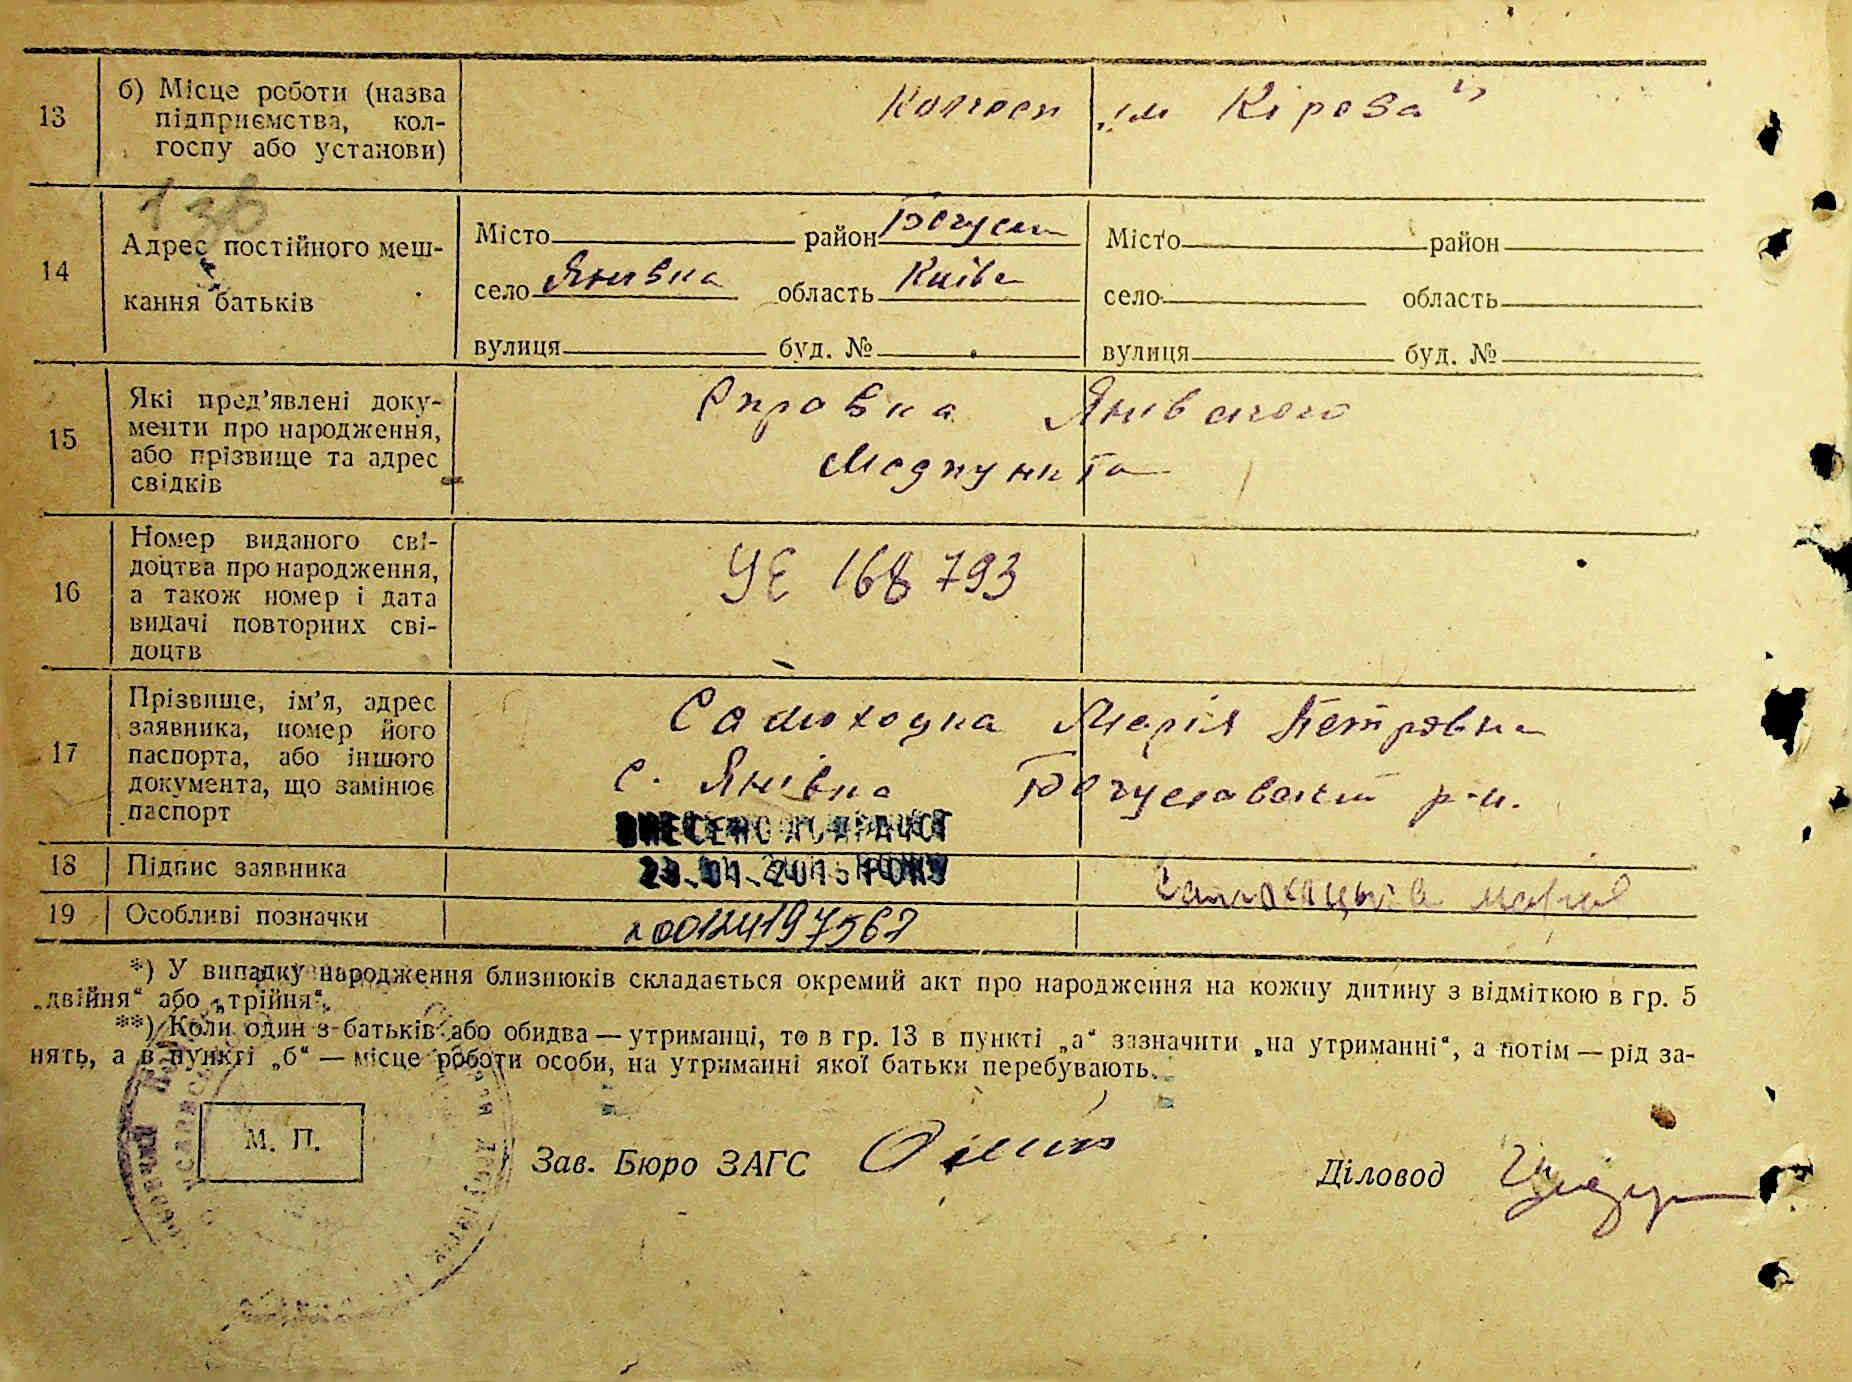 13
б) Місце роботи (назва
підприємства, кол-
госпу або установи)
Колгосп „ім Кірова"
14
Адрес постійного меш-
кання батьків
Місто район Богусл
село Янивка область Київс
вулиця буд. №
Місто район
село область
вулиця буд. №
15
Які пред’явлені доку-
менти про народження,
або прізвище та адрес
свідків
Справка Янівського
Медпункта
16
Номер виданого сві-
доцтва про народження,
а також номер і дата
видачі повторних сві-
доцтв
УЄ 168793
17
Прізвище, ім’я, адрес
заявника, номер його
паспорта, або іншого
документа, що замінює
паспорт
Самоходка Марія Петровна
с. Янівка Богуславський р-н.
ВНЕСЕНО ДО ДРАЦСГ
18 Підпис заявника
23.01.2015 РОКУ
19 Особливі позначки
00124197567
*) У випадку народження близнюків складається окремий акт про народження на кожну дитину з відміткою в гр. 5
„двійня“ або „трійня“.
**) Коли один з батьків або обидва — утриманці, то в гр. 13 в пункті „а“ зазначити „на утриманні“, а потім — рід за-
нять, а в пункті „б“ — місце роботи особи, на утриманні якої батьки перебувають.
М. П.
Зав. Бюро ЗАГС
Діловод